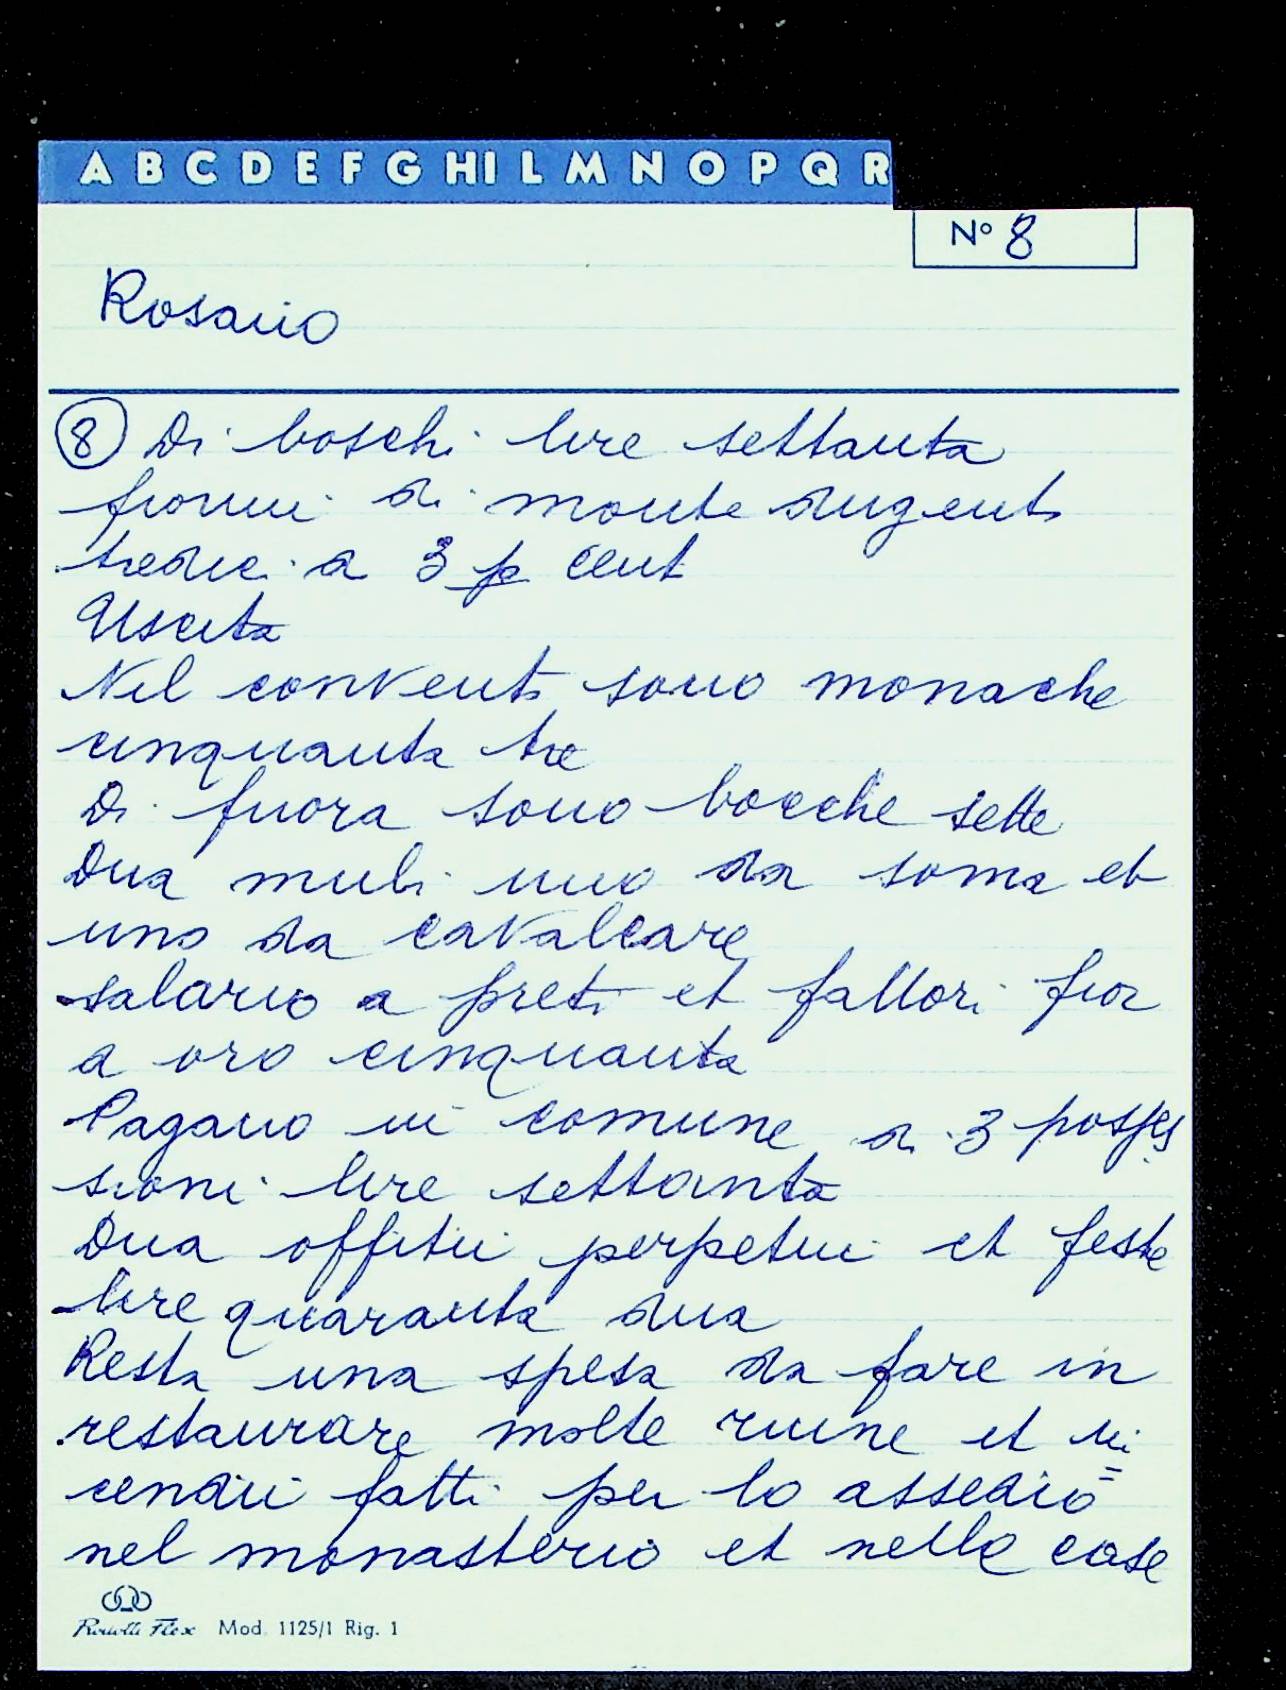 A B C D E F G H I L M N O P Q R
N° 8
Rosano
8 Di boschi lire settanta
fiorini di monte dugenti
tredici a 3 p cent
Uscita
Nel convento sono monache
cinquanta tre
Di fuora sono bocche sette
Dua muli uno da soma et
uno da cavalcare
salario a preti et fattori fior
a oro cinquanta
Pagano in comune di 3 posses
sioni lire settanta
Dua offitii perpetui et feste
lire quaranta dua
Resta una spesa da fare in
restaurare molte ruine et in=
cendii fatti per lo assedio
nel monasterio et nelle case
Mod. 1125/1 Rig. 1